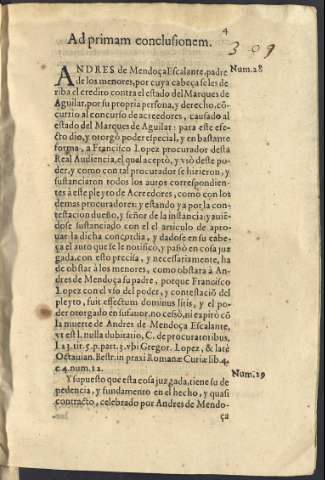 4
309
Ad primam conclusionem.
ANDRES de Mendoça Escalante, padre
Num.28
de los menores, por cuya cabeça se les de-
riba el credito contra el estado del Marques de
Aguilar, por su propria persona, y derecho, cō-
currio al concurso de acreedores, causado al
estado del Marques de Aguilar: para este efe-
cto dio, y otorgò poder especial, y en bastante
forma, a Francisco Lopez procurador desta
Real Audiencia, el qual aceptò, y vsò deste po-
der, y como con tal procurador se hizieron, y
sustanciaron todos los autos correspondien-
tes à este pleyto de Acreedores, como con los
demas procuradores: y estando ya por la con-
testacion dueño, y señor de la instancia; y auiē-
dose sustanciado con el el articulo de apro-
uar la dicha concordia, y dadose en su cabe-
ça el auto que se le notificò, y passò en cosa juz
gada, con esto precisa, y necessariamente, ha
de obstar à los menores, como obstarà à An-
dres de Mendoça su padre, porque Francisco
Lopez con el vso del poder, y contestaciō del
pleyto, fuit effectum dominus litis, y el po-
der otorgado en su fauor, no cessò, ni espirò cō
la muerte de Andres de Mendoça Escalante,
vt est l. nulla dubitatio, C. de procuratoribus,
l. 23. tit. 5. p. part. 3. vbi Gregor. Lopez, & latè
Octauian. Bestr. in praxi Romanæ Curiæ lib. 4.
c. 4. num. 12.
Y supuesto que esta cosa juzgada, tiene su de
Num.29
pedencia, y fundamento en el hecho, y quasi
contracto, celebrado por Andres de Mendo-
ça